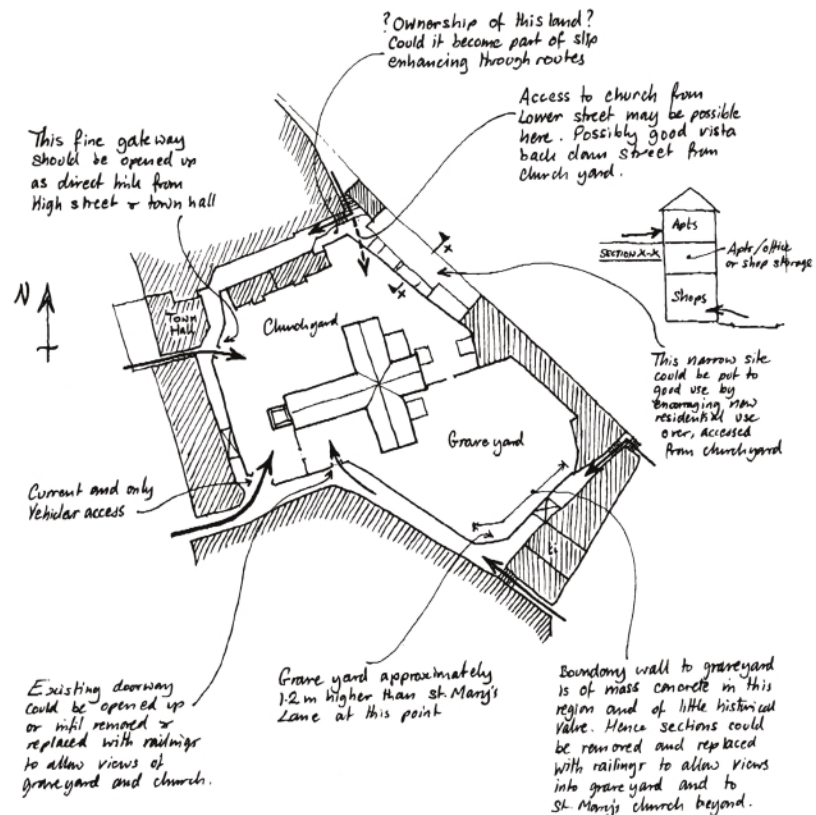 ? Ownership of this land?
Could it become part of slip
enhancing through routes
Access to church from
Lower street may be possible
here. Possibly good vista
back down street from
church yard.
This fine gateway
should be opened up
as direct link from
High street & town hall
Apts
SECTION X-X
Apts/office
or shop storage
Shops
N
Town
Hall
Churchyard
x
x
This narrow site
could be put to
good use by
encouraging new
residential use
over, accessed
from churchyard
Grave yard
Current and only
Vehicular access
Existing doorway
could be opened up
or infil removed &
replaced with railings
to allow views of
graveyard and church.
Grave yard approximately
1.2 m higher than St. Mary's
Lane at this point
Boundary wall to graveyard
is of mass concrete in this
region and of little historical
value. Hence sections could
be removed and replaced
with railings to allow views
into grave yard and to
St. Mary's church beyond.